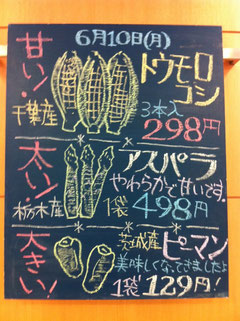 6月10日(月)
甘い!
千葉産
トウモロコシ
3本入
298円
太い!
栃木産
アスパラ
やわらかで甘いです。
1袋 498円
大きい!
茨城産
ピーマン
美味しくなってきましたよ
1袋 129円!